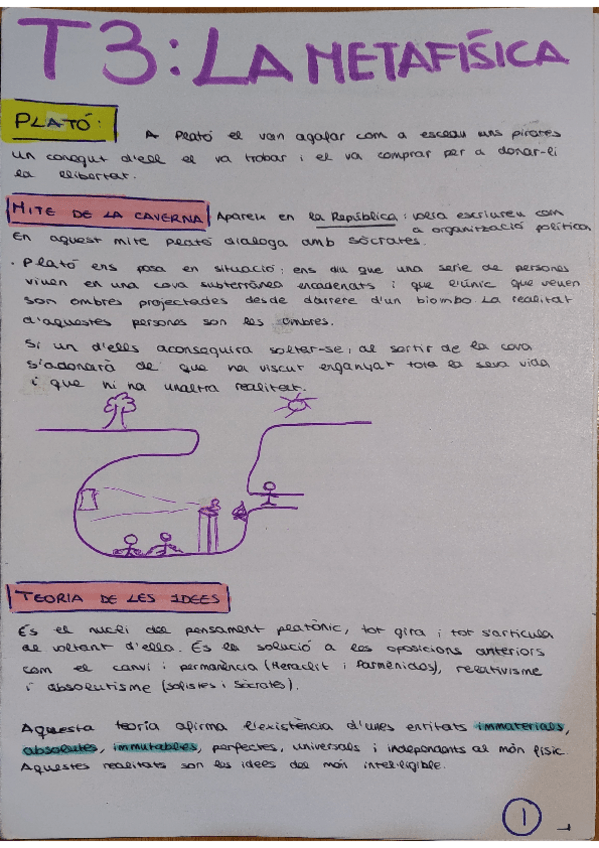 T3: LA METAFÍSICA
PLATÓ:
A Plató el van agafar com a esclau uns pirates
un conegut d'ell el va trobar i el va comprar per a donar-li
la llibertat.
MITE DE LA CAVERNA Apareix en la República: volia escriureu com
a organització política,
En aquest mite plató dialoga amb sócrates.
· Plató ens posa en situació: ens diu que una serie de persones
viuen en una cova subterrànea encadenats i que l'únic que veuen
son ombres projectades desde darrere d'un biombo La realitat
d'aquestes persones son les ombres.
Si un d'ells aconseguira soltar-se, al sortir de la cova
s'adonarà de que ha viscut enganyat tota la seva vida
i que hi ha unaltra realitat.
TEORIA DE LES IDEES
És el nucli del pensament platònic, tot gira i tot s'articula
al voltant d'ella. És la solució a les oposicions anteriors
com el canvi i permanència (Heraclit i Parmènides), relativisme
i absolutisme (sofistes i Sòcrates).
Aquesta teoria afirma l'existència d'unes entitats immaterials,
absolutes, immutables, perfectes, universals i independents al món físic.
Aquestes realitats son les idees del món intel·ligible.
1
1